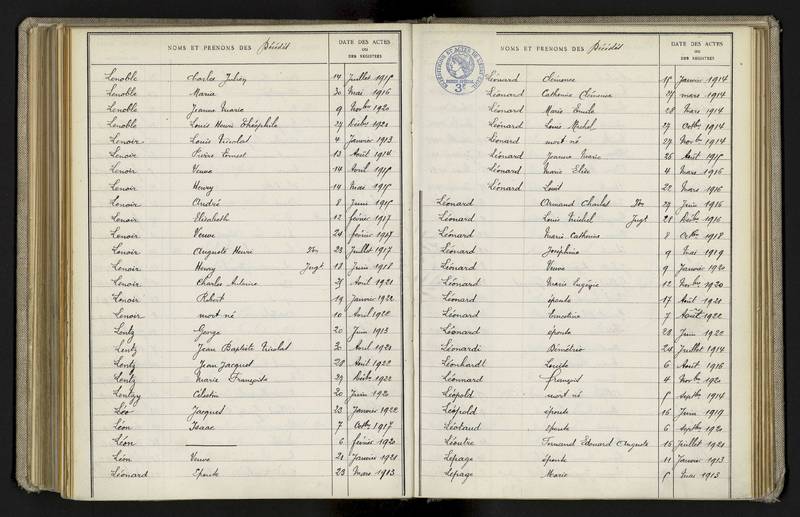 NOMS ET PRÉNOMS DES Décédés
DATE DES ACTES
OU
DES REGISTRES
Lenoble Charles Julien 14 Juillet 1915
Lenoble Maria 30 Mai 1916
Lenoble Jeanne Marie 9 Novbre 1920
Lenoble Louis Henri Théophile 27 Décbre 1921
Lenoir Louis Nicolas 4 Janvier 1913
Lenoir Pierre Ernest 13 Août 1914
Lenoir Veuve 14 Avril 1915
Lenoir Henry 14 Mai 1915
Lenoir André 8 Juin 1915
Lenoir Elisabeth 12 février 1917
Lenoir Veuve 24 février 1917
Lenoir Auguste Henri 23 Juillet 1917
Lenoir Henry Jugt 18 Juin 1918
Lenoir Charles Antoine Avril 1921
Lenoir Robert 19 Janvier 1922
Lenoir mort né 10 Avril 1922
Lentz George 20 Juin 1913
Lentz Jean Baptiste Nicolas Avril 1921
Lentz Jean Jacques 28 Août 1922
Lentz Marie Françoise 29 Décbre 1922
Lentzy Célestin 20 Juin
Léo Jacques 23 Janvier 1922
Léon Isaac 7 Octbre 1917
Léon 6 février 1920
Léon Veuve 21 Janvier 1921
Léonard Épouse 23 Mars 1913
NOMS ET PRÉNOMS DES Décédés
DATE DES ACTES
OU
DES REGISTRES
3F
Léonard Clémence 15 Janvier 1914
Léonard Catherine Clémence 27 mars 1914
Léonard Marie Emile 28 Mars 1914
Léonard Louis Michel 27 Octbre 1914
Léonard mort né 27 Novbre 1914
Léonard Jeanne Marie 25 Août 1915
Léonard Marie Elise 4 Mars 1916
Léonard Louis 22 Mars 1916
Léonard Armand Charles 29 Juin 1916
Léonard Louis Michel Jugt 28 Décbre 1916
Léonard Marie Catherine 8 Octbre 1918
Léonard Joséphine 9 Mai 1919
Léonard Veuve 9 Janvier 1920
Léonard Marie Eugénie 12 Novbre 1920
Léonard épouse 17 Août 1921
Léonard Ernestine 7 Août 1922
Léonard épouse 28 Juin 1922
Léonardi Démétrio 24 Juillet 1914
Léonhardt Louise 6 Août 1916
Léonnard François 4 Novbre 1920
Léopold mort né 5 Septbre 1914
Léopold épouse 16 Juin 1919
Léotaud épouse 6 Septbre 1920
Léoutre Fernand Edouard Auguste 16 Juillet 1921
Lepage épouse 11 Janvier 1913
Lepage Marie 5 Mai 1913